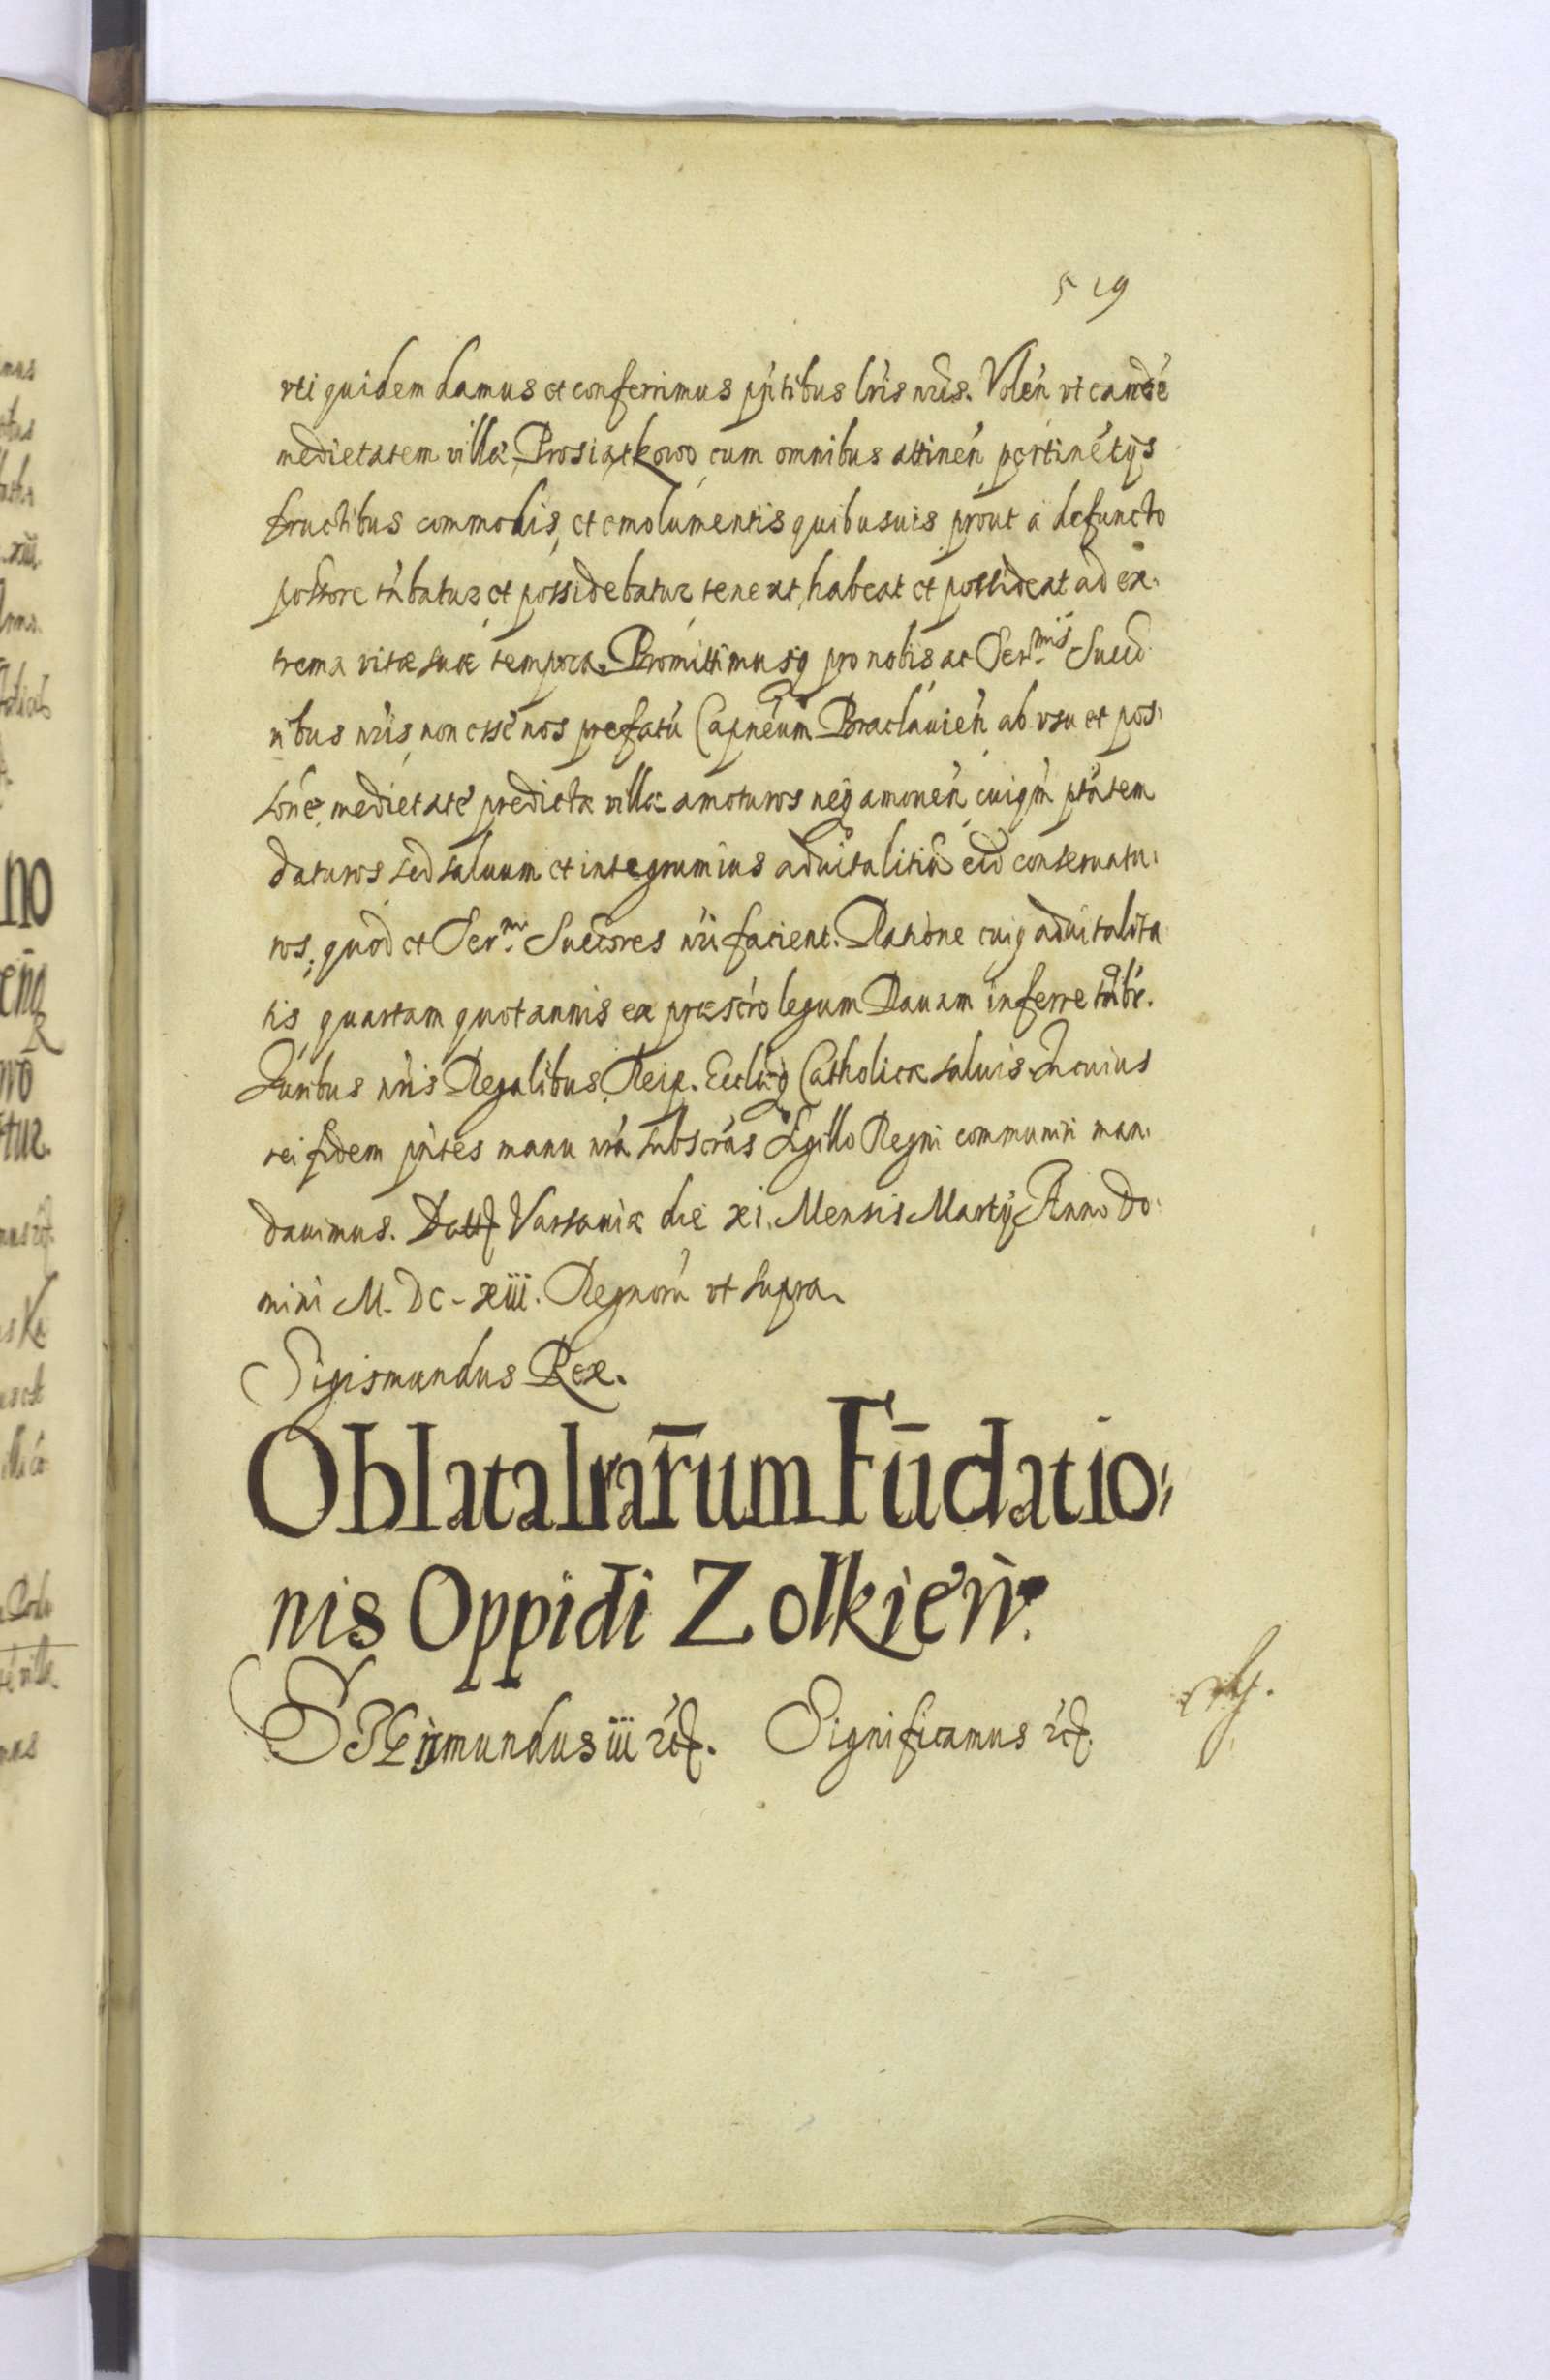 519
vti quidem damus et conferimus pñtibus lris nris. Volen̄ vt eandē
medietatem villæ Prosiatkowo cum omnibus attinen̄ pertinētijs
fructibus commodis, et emolumentis quibusuis prout a defuncto
possore tn̄batur et possidebatur teneat, habeat et possideat ad ex:
trema vitæ suæ tempora. Promittimusq pro nobis ac Ser.mis Succō
ribus nris, non esse nos prefatū Capneum Braclauien̄ ab vsu et pos:
sōne medietatē predictæ villæ amoturos neq amouen̄ cuiqm̄ ptātem
daturos, sed saluum et integrum ius aduitalitiū eid conseruatu:
ros, quod et Ser.mi Succores nri facient. Ratione cuiq aduitalita
tis quartam quotannis ex præscro legum Rauam inferre tn̄br.
Iuribus nris Regalibus, Reip. Ecclæq Catholicæ saluis. In cuius
rei fidem pn̄tes manu nrā subscrās Sigillo Regni communiri man:
dauimus. Datt Varsauiæ die xi. Mensis Martij Anno Do:
mini M. DC. xiii. Regnorū vt supra.
Sigismundus Rex.
Oblata lrarum Fūdatio:
nis Oppidi Zolkien̄.
Sigismundus iii etc. Significamus etc.